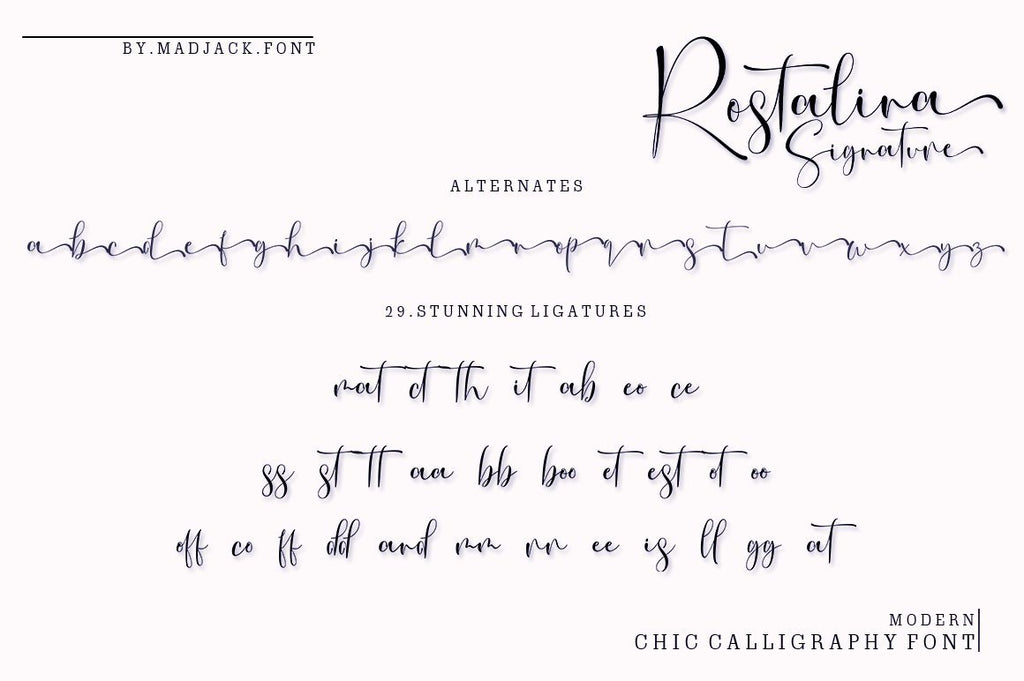 BY.MADJACK.FONT
Rostalina
Signature
ALTERNATES
a b c d e f g h i j k l m n o p q r s t u v w x y z
29.STUNNING LIGATURES
mat ct th it ab eo ce
ss st tt aa bb boo et est ot oo
off co ff dd and mm nn ee is ll gg at
MODERN
CHIC CALLIGRAPHY FONT